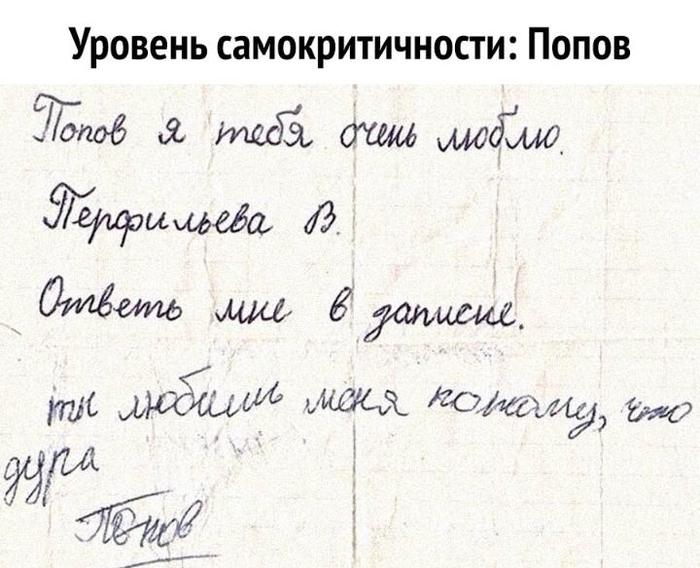 Уровень самокритичности: Попов
Попов я тебя очень люблю.
Перфильева В.
Ответь мне в записке.
ты любишь меня потому, что
дура
Попов